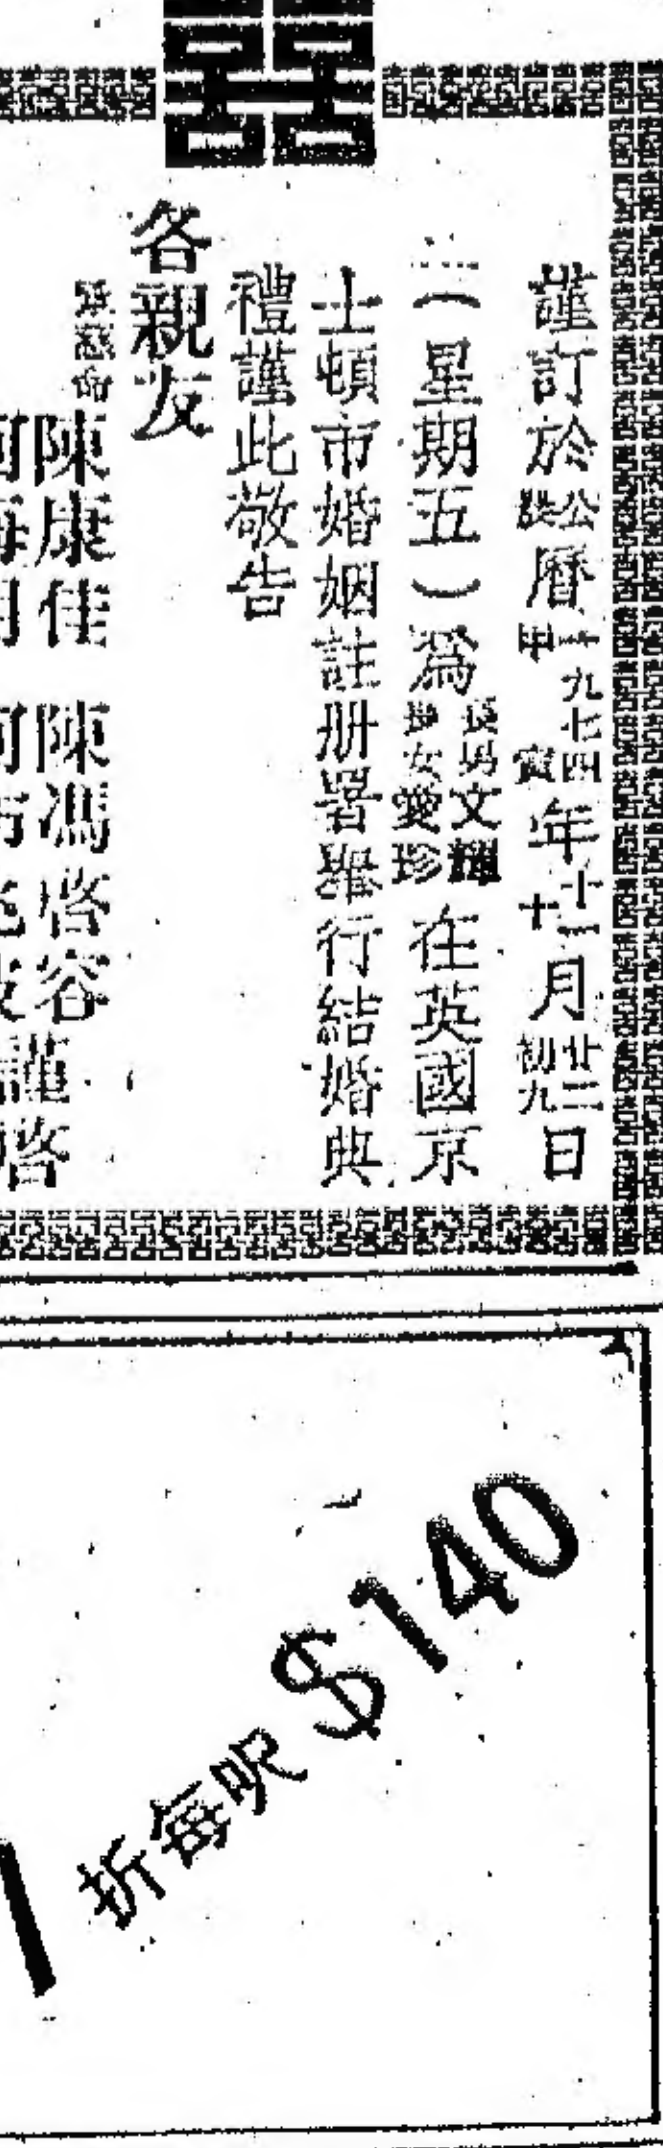 囍
謹訂於公農曆一九七四甲寅年十一十月廿二初九日
（星期五）為長男文輝長女愛珍在英國京
士頓市婚姻註册署舉行結婚典
禮謹此敬告
各親友
承慈命
陳康佳 陳馮啓容謹啓
折每呎$140